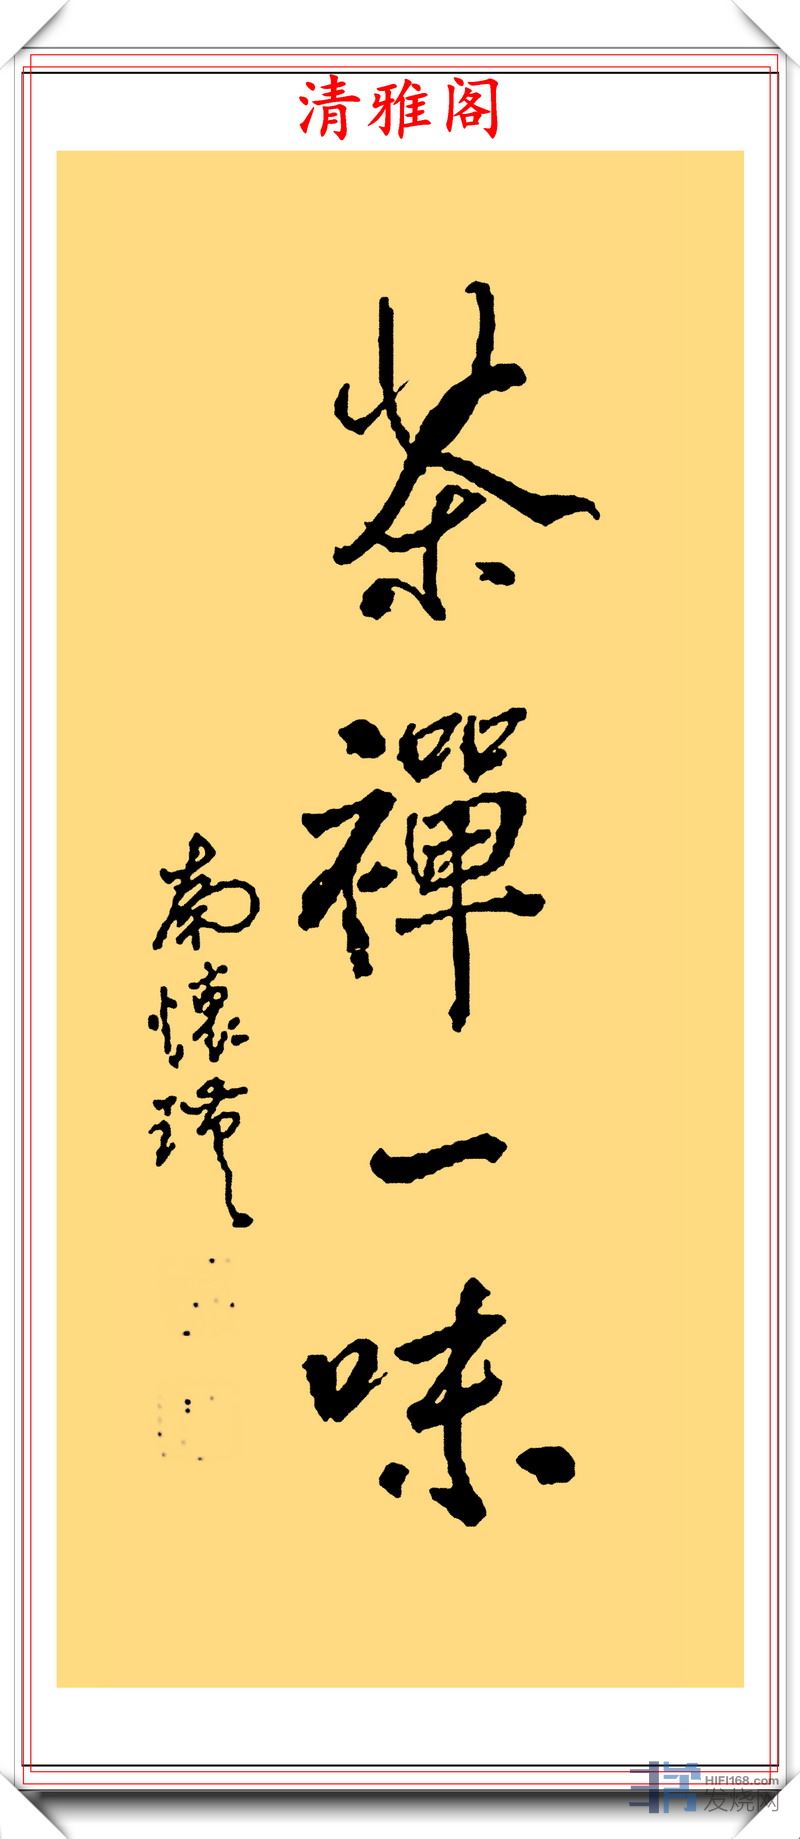 清雅阁
茶禪一味
南懷瑾
HIFI168.com
发烧网